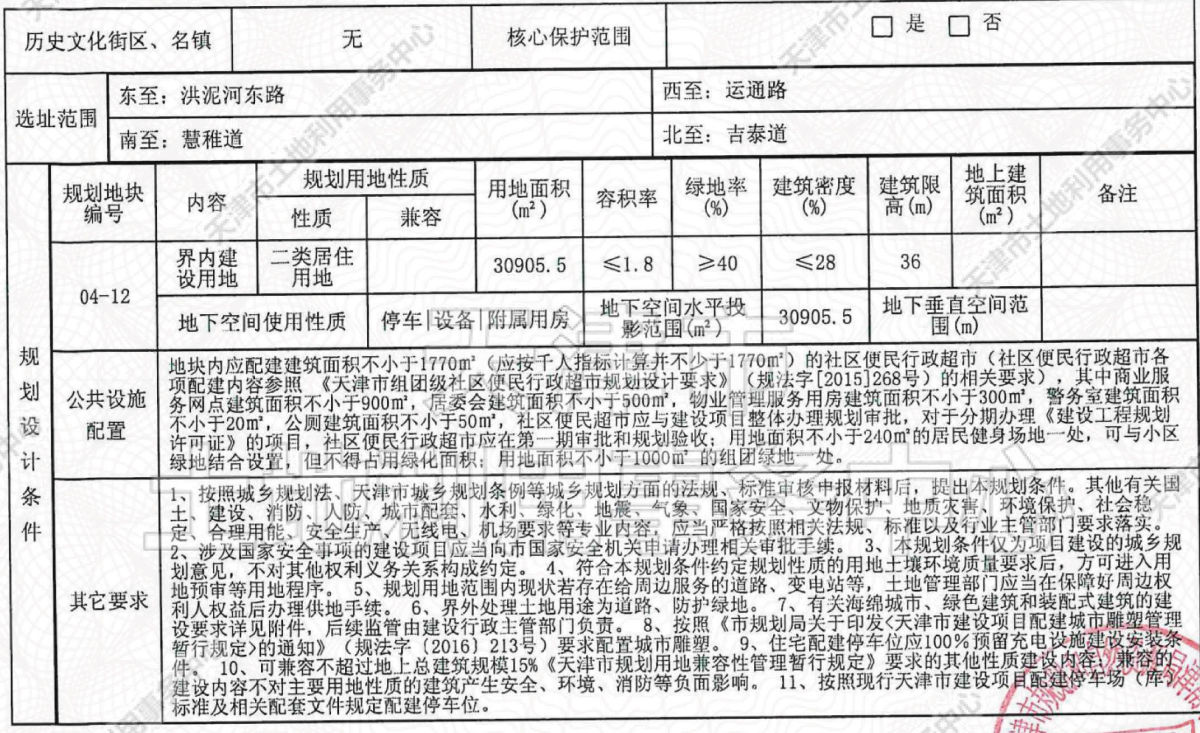 历史文化街区、名镇 无 核心保护范围 □ 是 □ 否
选址范围 东至：洪泥河东路 西至：运通路
南至：慧稚道 北至：吉泰道
规划设计条件
规划地块编号 内容 规划用地性质 用地面积(m²) 容积率 绿地率(%) 建筑密度(%) 建筑限高(m) 地上建筑面积(m²) 备注
性质 兼容
04-12 界内建设用地 二类居住用地 30905.5 ≤1.8 ≥40 ≤28 36
地下空间使用性质 停车 设备 附属用房 地下空间水平投影范围(m²) 30905.5 地下垂直空间范围(m)
公共设施配置
地块内应配建建筑面积不小于1770m²（应按千人指标计算并不少于1770m²）的社区便民行政超市（社区便民行政超市各
项配建内容参照 《天津市组团级社区便民行政超市规划设计要求》（规法字[2015]268号）的相关要求），其中商业服
务网点建筑面积不小于900m²，居委会建筑面积不小于500m²，物业管理服务用房建筑面积不小于300m²，警务室建筑面积
不小于20m²，公厕建筑面积不小于50m²，社区便民超市应与建设项目整体办理规划审批，对于分期办理《建设工程规划
许可证》的项目，社区便民行政超市应在第一期审批和规划验收；用地面积不小于240m²的居民健身场地一处，可与小区
绿地结合设置，但不得占用绿化面积；用地面积不小于1000m² 的组团绿地一处。
其它要求
1、按照城乡规划法、天津市城乡规划条例等城乡规划方面的法规、标准审核申报材料后，提出本规划条件。其他有关国
土、建设、消防、人防、城市配套、水利、绿化、地震、气象、国家安全、文物保护、地质灾害、环境保护、社会稳
定、合理用能、安全生产、无线电、机场要求等专业内容，应当严格按照相关法规、标准以及行业主管部门要求落实。
2、涉及国家安全事项的建设项目应当向市国家安全机关申请办理相关审批手续。 3、本规划条件仅为项目建设的城乡规
划意见，不对其他权利义务关系构成约定。 4、符合本规划条件约定规划性质的用地土壤环境质量要求后，方可进入用
地预审等用地程序。 5、规划用地范围内现状若存在给周边服务的道路、变电站等，土地管理部门应当在保障好周边权
利人权益后办理供地手续。 6、界外处理土地用途为道路、防护绿地。 7、有关海绵城市、绿色建筑和装配式建筑的建
设要求详见附件，后续监管由建设行政主管部门负责。 8、按照《市规划局关于印发<天津市建设项目配建城市雕塑管理
暂行规定>的通知》（规法字〔2016〕213号）要求配置城市雕塑。 9、住宅配建停车位应100%预留充电设施建设安装条
件。 10、可兼容不超过地上总建筑规模15%《天津市规划用地兼容性管理暂行规定》要求的其他性质建设内容，兼容的
建设内容不对主要用地性质的建筑产生安全、环境、消防等负面影响。 11、按照现行天津市建设项目配建停车场（库）
标准及相关配套文件规定配建停车位。
天津市土地利用事务中心